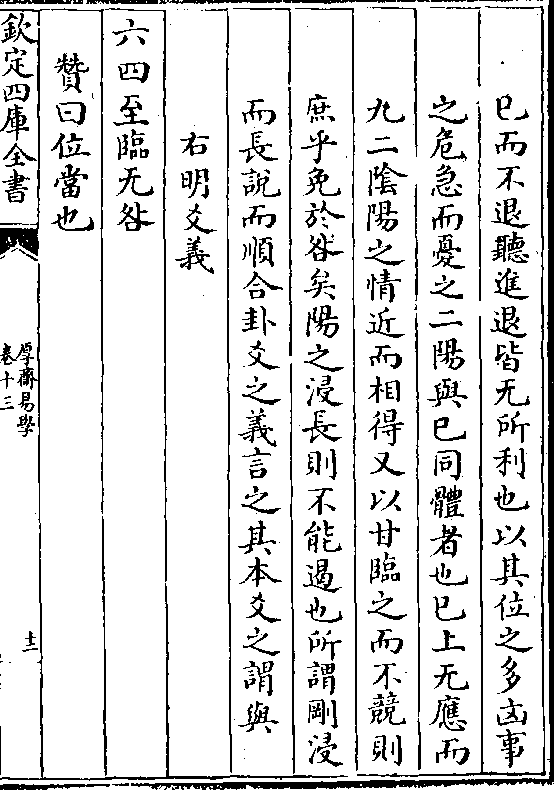 已而不退聽進退皆无所利也以其位之多凶事
之危急而憂之二陽與已同體者也已上无應而
九二陰陽之情近而相得又以甘臨之而不競則
庶乎免於咎矣陽之浸長則不能遏也所謂剛浸
而長說而順合卦爻之義言之其本爻之謂與
右明爻義
六四至臨无咎
贊曰位當也
欽定四庫全書
厚齋易學
卷十三
十三